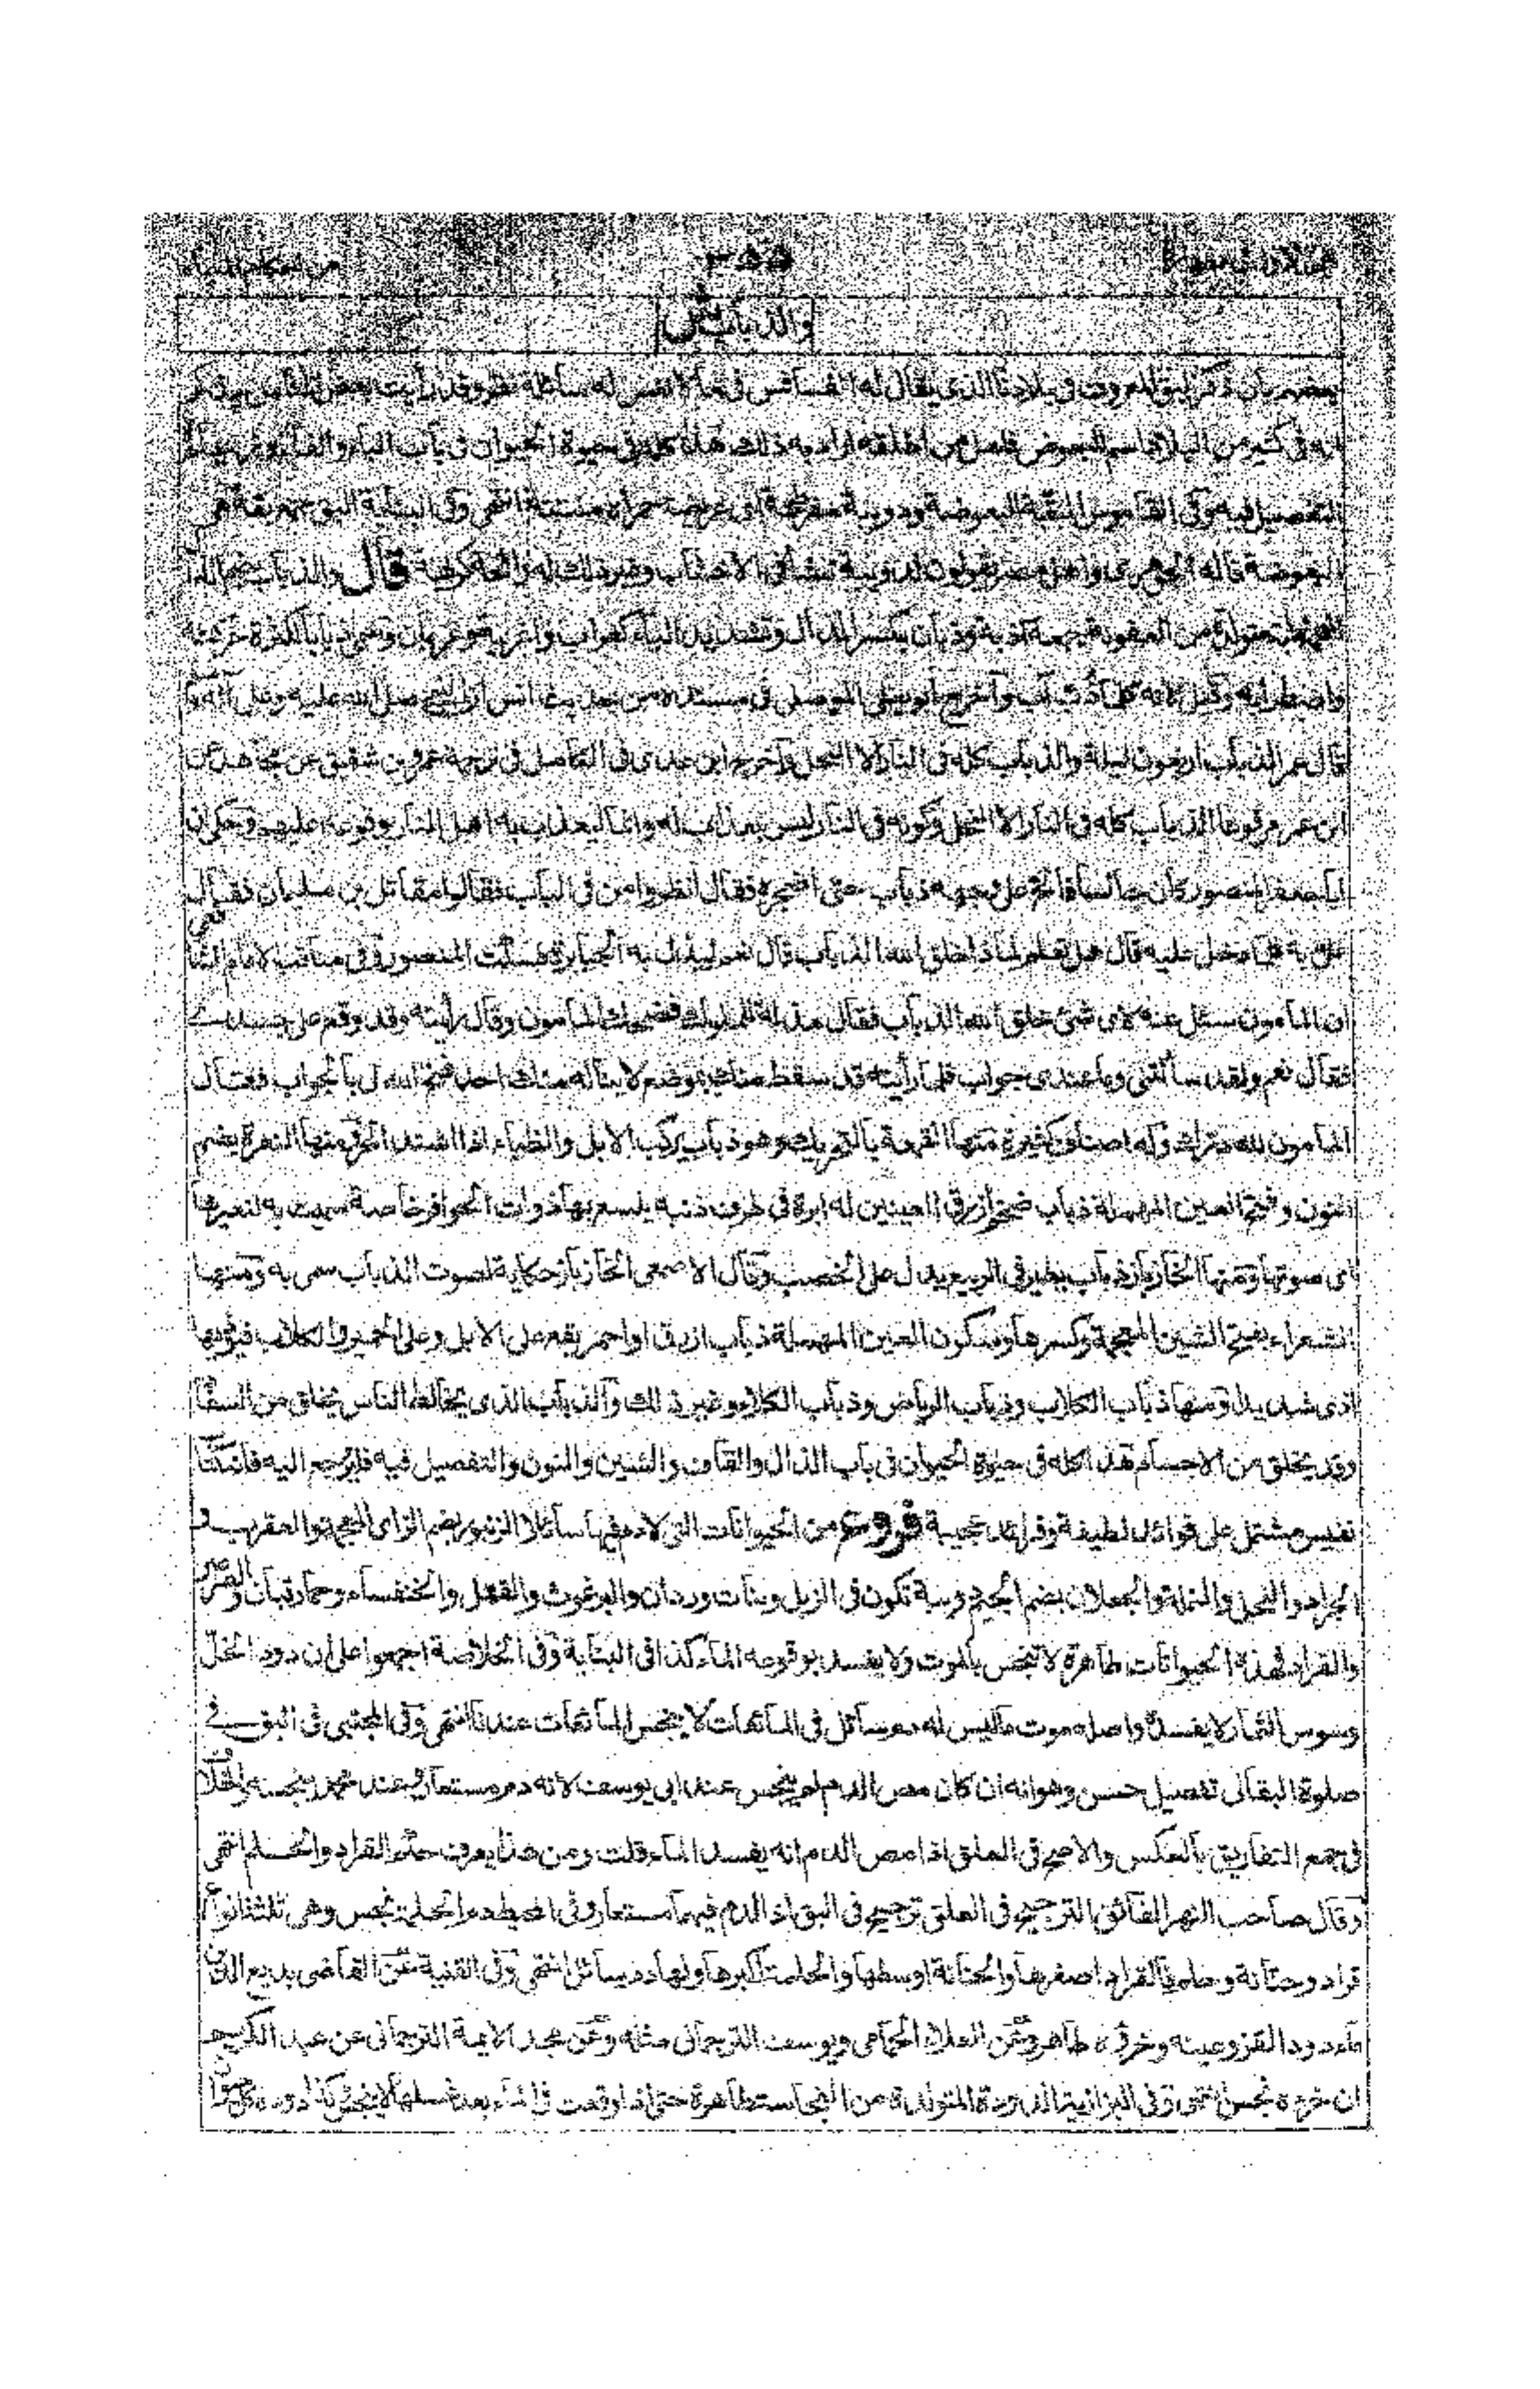 ٣٥٥
والذباب ش
بعضهم بان ذكر البق المعروف في بلادنا الذي يقال له الفسافس في ما لا نفس له سائلة نظر وقد رأيت بعض الناس
انه في كثير من البلاد اسم البعوض فلعل من اطلقه اراد به ذلك هذا كله في حيوة الحيوان في باب الباء والفاء
التفصيل فيه وفي القاموس البقة البعوضة ودويبة مفرطحة اى عريضة حمراء منتنة انتهى وفي البناية البق جمع بقة هى
البعوضة قاله الجوهرى واهل مصر يقولون لدويبة تنشأ في الاخشاب وغير ذلك لها رائحة كريهة قال والذباب
من العفونة جمعه اذبة وذبان بكسر الذال وتشديد الباء كغراب واغربة وغربان وسمى ذبابا لكثرة حركته
واضطرابه وقيل لانه كلما ذب آب وأخرج ابو يعلى الموصلى في مسنده من حديث انس ان النبي صلى الله عليه وعلى آله
قال عمر الذباب اربعون ليلة والذباب كله في النار الا النحل وأخرج ابن عدى في الكامل في ترجمة عمرو بن شقيق عن مجاهد عن
ابن عمر مرفوعا الذباب كله في النار الا النحل وكونه في النار ليس بعذاب له وانما ليعذب به اهل النار بوقوعه عليهم وحكى ان
ابا جعفر المنصور كان جالسا فالح على وجهه ذباب حتى اضجره فقال انظروا من في الباب فقالوا مقاتل بن سليمان فقال
على به فلما دخل عليه قال هل تعلم لماذا خلق الله الذباب قال نعم ليذل به الجبابرة فسكت المنصور وفي مناقب الامام الشافعي
ان المأمون سئل عنه لاى شئ خلق الله الذباب فقال مذلة للملوك فضحك المأمون وقال رأيته وقد وقع على جسدى
فقال نعم ولقد سألتني وما عندى جواب فلما رأيته قد سقط منك بموضع لا يناله منك احد فتح الله لى بالجواب فقال
المأمون لله درك وله اصناف كثيرة منها القمعة بالتحريك وهو ذباب يركب الابل والظباء اذا اشتد الحر ومنها النعرة بضم
النون وفتح العين المهملة ذباب ضخم أزرق العينين له ابرة في طرف ذنبه يلسع بها ذوات الحوافر خاصة سميت به لنعيرها
اى صوتها ومنها الخازباز ذباب يطير في الربيع يدل على الخصب وقال الاصمعى الخازباز حكاية لصوت الذباب سمى به ومنها
الشعراء بفتح الشين المعجمة وكسرها وسكون العين المهملة ذباب ازرق او احمر يقع على الابل وعلى الحمير والكلاب فيؤذيها
اذى شديدا ومنها ذباب الكلاب وذباب الرياض وذباب الكلاء وغير ذلك والذباب الذى يخالط الناس يخلق من السفاد
وقد يخلق من الاجسام هذا كله في حيوة الحيوان في باب الذال والقاف والشين والنون والتفصيل فيه فليرجع اليه فانه كتاب
نفيس مشتمل على فوائد لطيفة وفرائد عجيبة فروع من الحيوانات التي لا دم فيها سائلا الزنبور بضم الزاى المعجمة والعقرب و
الجراد والنحل والنملة والجعلان بضم الجيم دويبة تكون في الزبل وبنات وردان والبرغوث والقمل والخنفساء وحمار قبان والصرصر
والقراد فهذه الحيوانات طاهرة لا تنجس بالموت ولا يفسد بوقوعه الماء كذا في البناية وفي الخلاصة اجمعوا على ان دود الخل
وسوس الثمار لا يفسد واصله موت ما ليس له دم سائل في المائعات لا ينجس المائعات عندنا انتهى وفي المجتبى في البق في
صلوة البقالى تفصيل حسن وهو انه ان كان مص الدم لم ينجس عند ابى يوسف لانه دم مستعار وعند محمد ينجسه والخلاف
في جمع التفاريق بالعكس والاصح في العلق اذا مص الدم انه يفسد الماء قلت ومن هذا يعرف حكم القراد والحلم انتهى
وقال صاحب النهر الفائق الترجيح في العلق ترجيح في البق اذ الدم فيهما مستعار وفي المحيط دم الحلمة نجس وهى ثلثة انواع
قراد وحنانة وحلمة فالقراد اصغرها والحنانة اوسطها والحلمة اكبرها ولها دم سائل انتهى وفي القنية عن القاضى بديع الدين
ماء دود القز وعينه وخرؤه طاهر وعن العلاء الحمامى ويوسف الترجمانى مثله وعن مجد الايمة الترجمانى عن عبد الكريم
ان خرءه نجس انتهى وفي البزازية الدودة المتولدة من النجاسة طاهرة حتى اذا وقعت في الماء بعد غسلها لا ينجس وكذا دودة كل